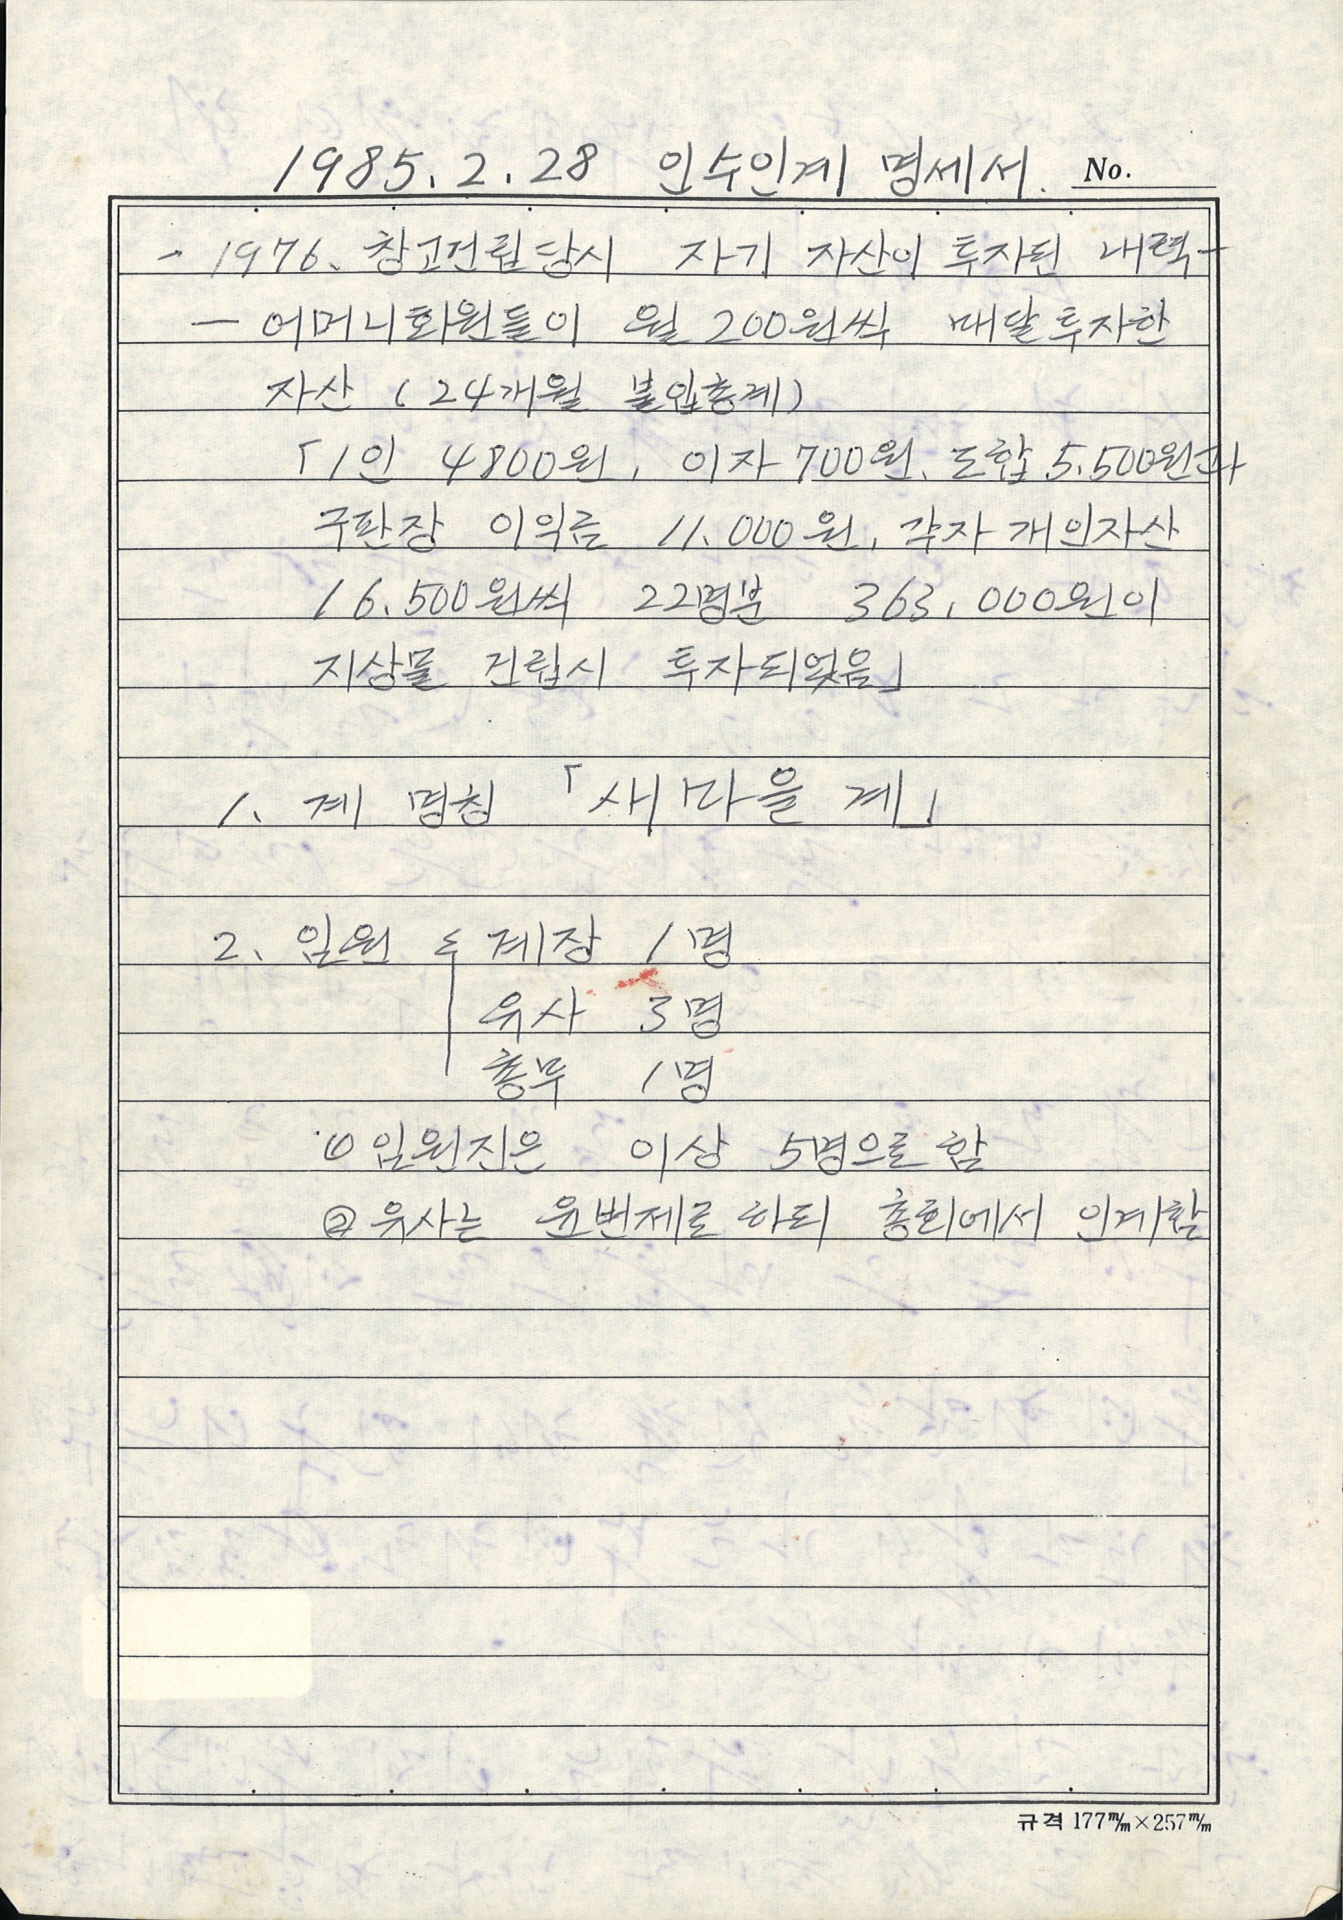 1985. 2. 28 인수인계 명세서. No.
- 1976. 창고건립당시 자기 자산이 투자된 내력-
- 어머니회원들이 월 200원씩 매달투자한
자산 (24개월 불입총계)
「1인 4800원, 이자 700원, 도합 5.500원과
구판장 이익금 11.000원, 각자 개인자산
16.500원씩 22명분 363,000원이
지상물 건립시 투자되었음」
1. 계 명칭 「새마을 계」
2. 임원 계장 1명
유사 3명
총무 1명
① 임원진은 이상 5명으로 함
② 유사는 윤번제로 하되 총회에서 인계함
규격 177㎜×257㎜